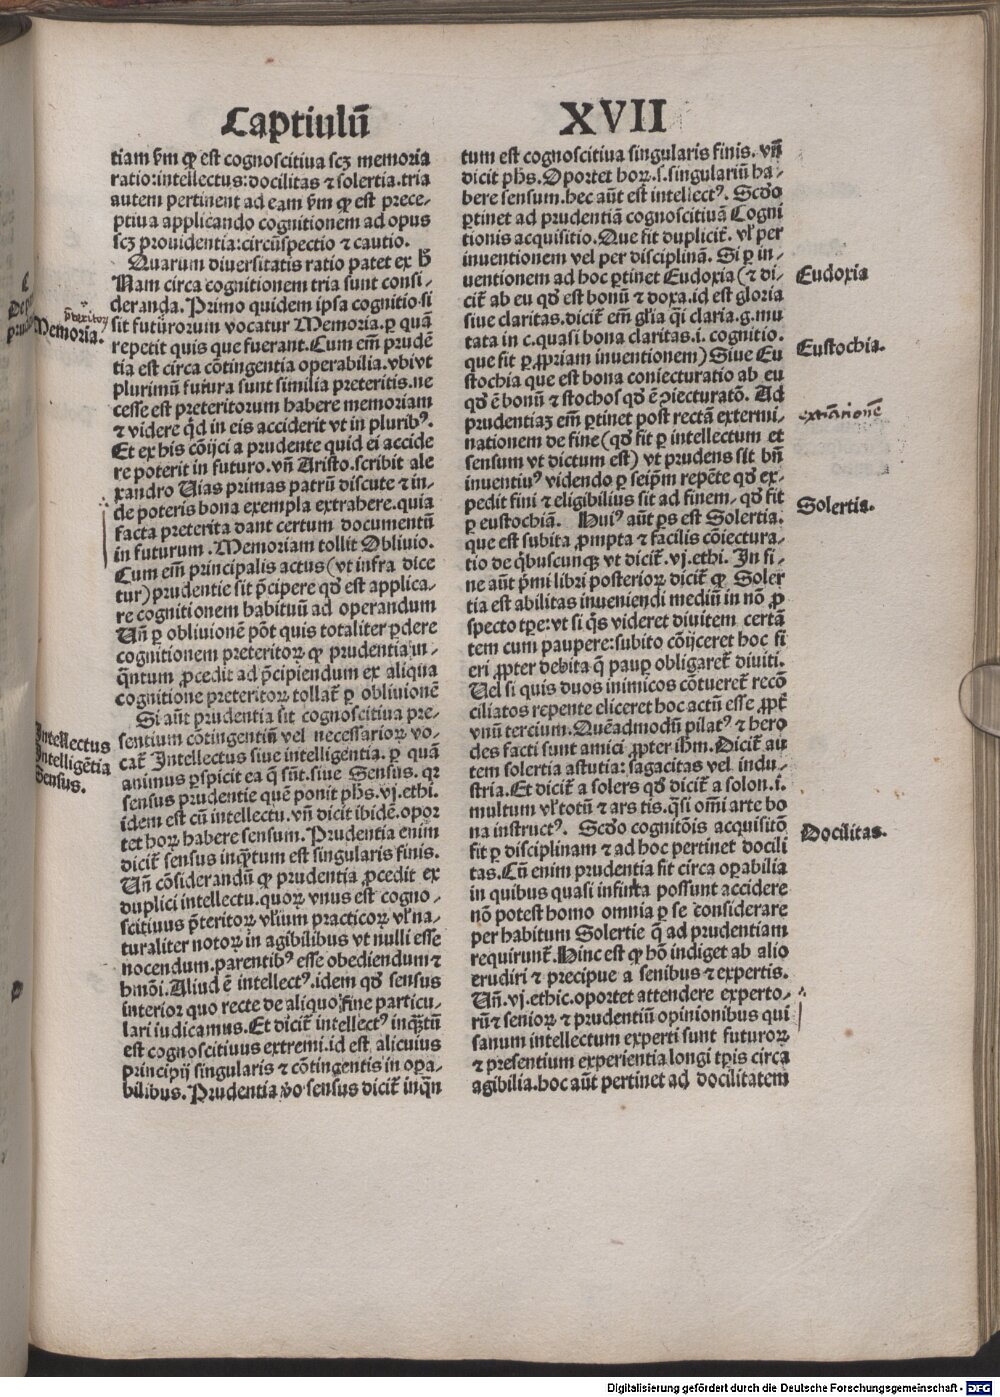 Captiulū XVII
tiam ꝟm ꝙ est cognoscitiua scꝫ memoria
ratio:intellectus:docilitas ⁊ solertia.tria
autem pertinent ad eam ꝟm ꝙ est prece-
ptiua applicando cognitionem ad opus
scꝫ prouidentia:circūspectio ⁊ cautio.
Quarum diuersitatis ratio patet ex h̄
Nam circa cognitionem tria sunt consi-
deranda. Primo quidem ipsa cognitio.si
sit futurorum vocatur Memoria.ꝑ quā
repetit quis que fuerant.Cum em̄ prudē
tia est circa cōtingentia operabilia.vbi vt
plurimū futura sunt similia preteritis.ne
cesse est preteritorum habere memoriam
⁊ videre qd̄ in eis acciderit vt in pluribꝰ.
Et ex his cōijci a prudente quid ei accide
re poterit in futuro.vn̄ Aristo.scribit ale
xandro Uias primas patrū discute ⁊ in-
de poteris bona exempla extrahere.quia
facta preterita dant certum documentū
in futurum.Memoriam tollit Obliuio.
Cum em̄ principalis actus(vt infra dice
tur)prudentie sit p̄cipere qd̓ est applica-
re cognitionem habituū ad operandum
Un̄ ꝑ obliuionē pōt quis totaliter ꝑdere
cognitionem preteritoꝝ ꝙ prudentia in-
q̄ntum ꝓcedit ad p̄cipiendum ex aliqua
cognitione preteritoꝝ tollat̄ ꝑ obliuionē
Si aūt prudentia sit cognoscitiua pre-
sentium cōtingentiū vel necessarioꝝ vo-
cat̄ Intellectus siue intelligentia. ꝑ quā
animus ꝑspicit ea q̄ sūt.siue Sensus. qꝛ
sensus prudentie quē ponit ph̄s.vj.ethi.
idem est cū intellectu.vn̄ dicit ibidē.opor
tet hoꝝ habere sensum.Prudentia enim
dicit̄ sensus inq̄tum est singularis finis.
Un̄ cōsiderandū ꝙ prudentia ꝓcedit ex
duplici intellectu.quoꝝ vnus est cogno-
scitiuus p̄teritoꝝ vl̓ium practicoꝝ vl̓ na-
turaliter notoꝝ in agibilibus vt nulli esse
nocendum.parentibꝰ esse obediendum ⁊
hmōi.Aliud ē intellectꝰ.idem qd̓ sensus
interior quo recte de aliquo fine particu-
lari iudicamus.Et dicit̄ intellectꝰ inq̄tū
est cognoscitiuus extremi.id est alicuius
principij singularis ⁊ cōtingentis in oꝑa-
bilibus.Prudentia v̓o sensus dicit̄ inq̄n
tum est cognoscitiua singularis finis. vn̄
dicit ph̄s.Oportet hoꝝ.s.singulariū ha-
bere sensum.hec aūt est intellectꝰ. Scd̓o
ꝑtinet ad prudentiā cognoscitiuā Cogni
tionis acquisitio.Que fit duplicit̄. vl̓ per
inuentionem vel per disciplinā. Si ꝑ in-
uentionem ad hoc ꝑtinet Eudoxia(⁊ di-
cit̄ ab eu qd̓ est bonū ⁊ doxa.id est gloria
siue claritas.dicit̄ em̄ gl̓ia q̄si claria.g.mu
tata in c.quasi bona claritas.i. cognitio.
que fit ꝑ ꝓpriam inuentionem)Siue Eu
stochia que est bona coniecturatio ab eu
qd̓ ē bonū ⁊ stochos qd̓ ē ꝯiecturatō. Ad
prudentiaꝫ em̄ ꝑtinet post rectā extermi-
nationem de fine(qd̓ fit ꝑ intellectum et
sensum vt dictum est) vt prudens sit bn̄
inuentiuꝰ videndo ꝑ seip̄m repēte qd̓ ex-
pedit fini ⁊ eligibilius sit ad finem. qd̓ fit
ꝑ eustochiā. Huiꝰ aūt ꝑs est Solertia.
que est subita ꝓmpta ⁊ facilis cōiectura-
tio de q̄buscunqꝫ vt dicit̄.vj.ethi. In fi-
ne aūt p̄mi libri posterioꝝ dicit̄ ꝙ Soler
tia est abilitas inueniendi mediū in nō ꝓ
specto tꝑe:vt si q̄s videret diuitem certā
tem cum paupere:subito cōijceret hoc fi
eri ꝓpter debita q̄ pauꝑ obligaret̄ diuiti.
Uel si quis duos inimicos cōtueret̄ recō
ciliatos repente eliceret hoc actū esse ꝓpt̄
vnū tercium.Quēadmodū pilatꝰ ⁊ hero
des facti sunt amici ꝓpter ih̄m.Dicit̄ au
tem solertia astutia: sagacitas vel indu-
stria.Et dicit̄ a solers qd̓ dicit̄ a solon.i.
multum vl̓ totū ⁊ ars tis.q̄si om̄i arte bo
na instructꝰ. Scd̓o cognitōis acquisitō
fit ꝑ disciplinam ⁊ ad hoc pertinet docili
tas.Cū enim prudentia fit circa oꝑabilia
in quibus quasi infinta possunt accidere
nō potest homo omnia ꝑ se considerare
per habitum Solertie q̄ ad prudentiam
requirunt̄.Hinc est ꝙ hō indiget ab alio
erudiri ⁊ precipue a senibus ⁊ expertis.
Un̄.vj.ethic.oportet attendere experto-
rū ⁊ senioꝝ ⁊ prudentiū opinionibus qui
sanum intellectum experti sunt futuroꝝ
⁊ presentium experientia longi tꝑis circa
agibilia.hoc aūt pertinet ad docilitatem
Memoria.
Intellectus
Intelligētia
Sensus.
Eudoxia
Eustochia.
Solertis.
Docilitas.
Digitalisierung gefördert durch die Deutsche Forschungsgemeinschaft - DFG